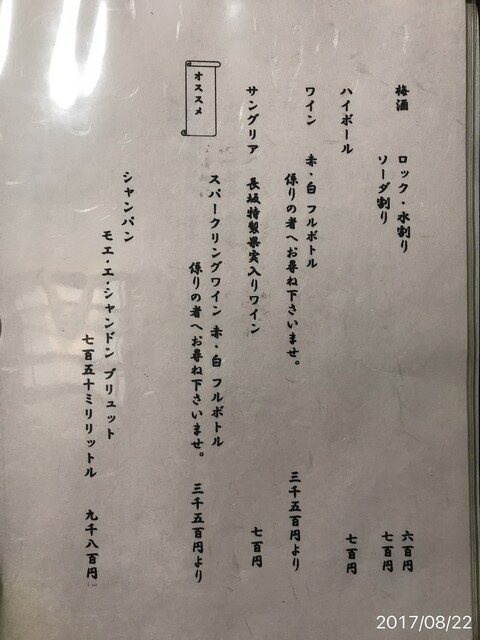 梅酒 ロック・水割り 六百円
ソーダ割り 七百円
ハイボール 七百円
ワイン 赤・白 フルボトル
係りの者へお尋ね下さいませ。 三千五百円より
サングリア 長坂特製果実入りワイン 七百円
オススメ
スパークリングワイン 赤・白 フルボトル
係りの者へお尋ね下さいませ。 三千五百円より
シャンパン
モエ・エ・シャンドン ブリュット
七百五十ミリリットル 九千八百円
2017/08/22